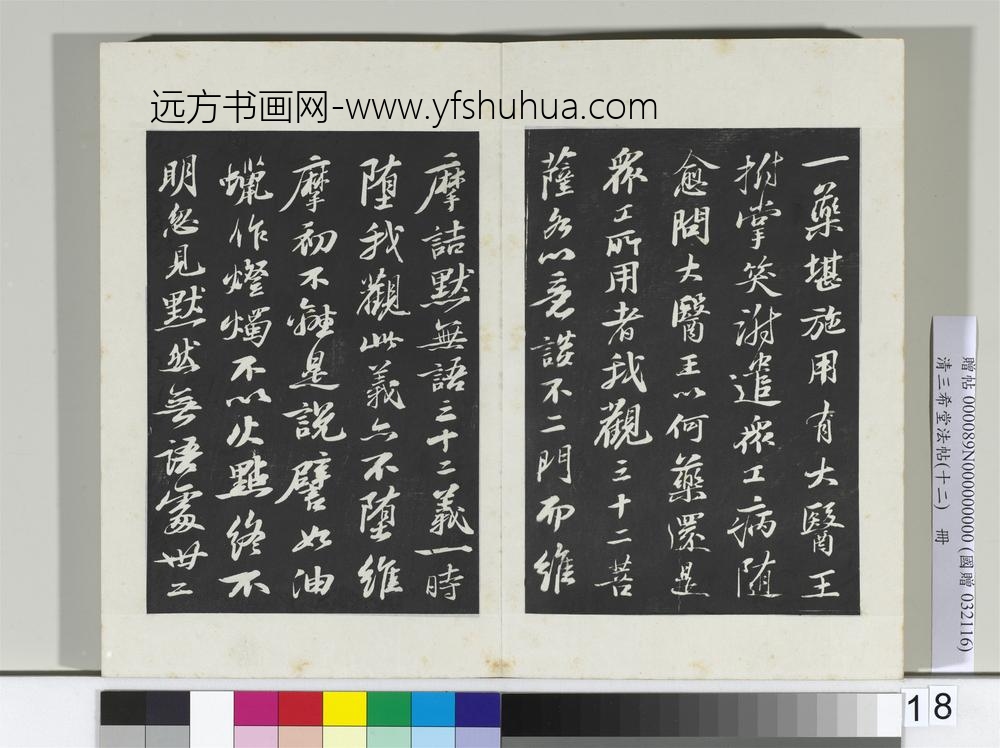 远方书画网-www.yfshuhua.com
一藥堪施用有大醫王
拊掌笑謝遣眾工病隨
愈問大醫王以何藥還是
眾工所用者我觀三十二菩
薩各以意談不二門而維
摩詰默無語三十二義一時
墮我觀此義亦不墮維
摩初不離是說譬如油
蠟作燈燭不以火點終不
明忽見默然無語處卅二
贈帖 000089N000000000 (國贈 032116)
清三希堂法帖(十二) 冊
18